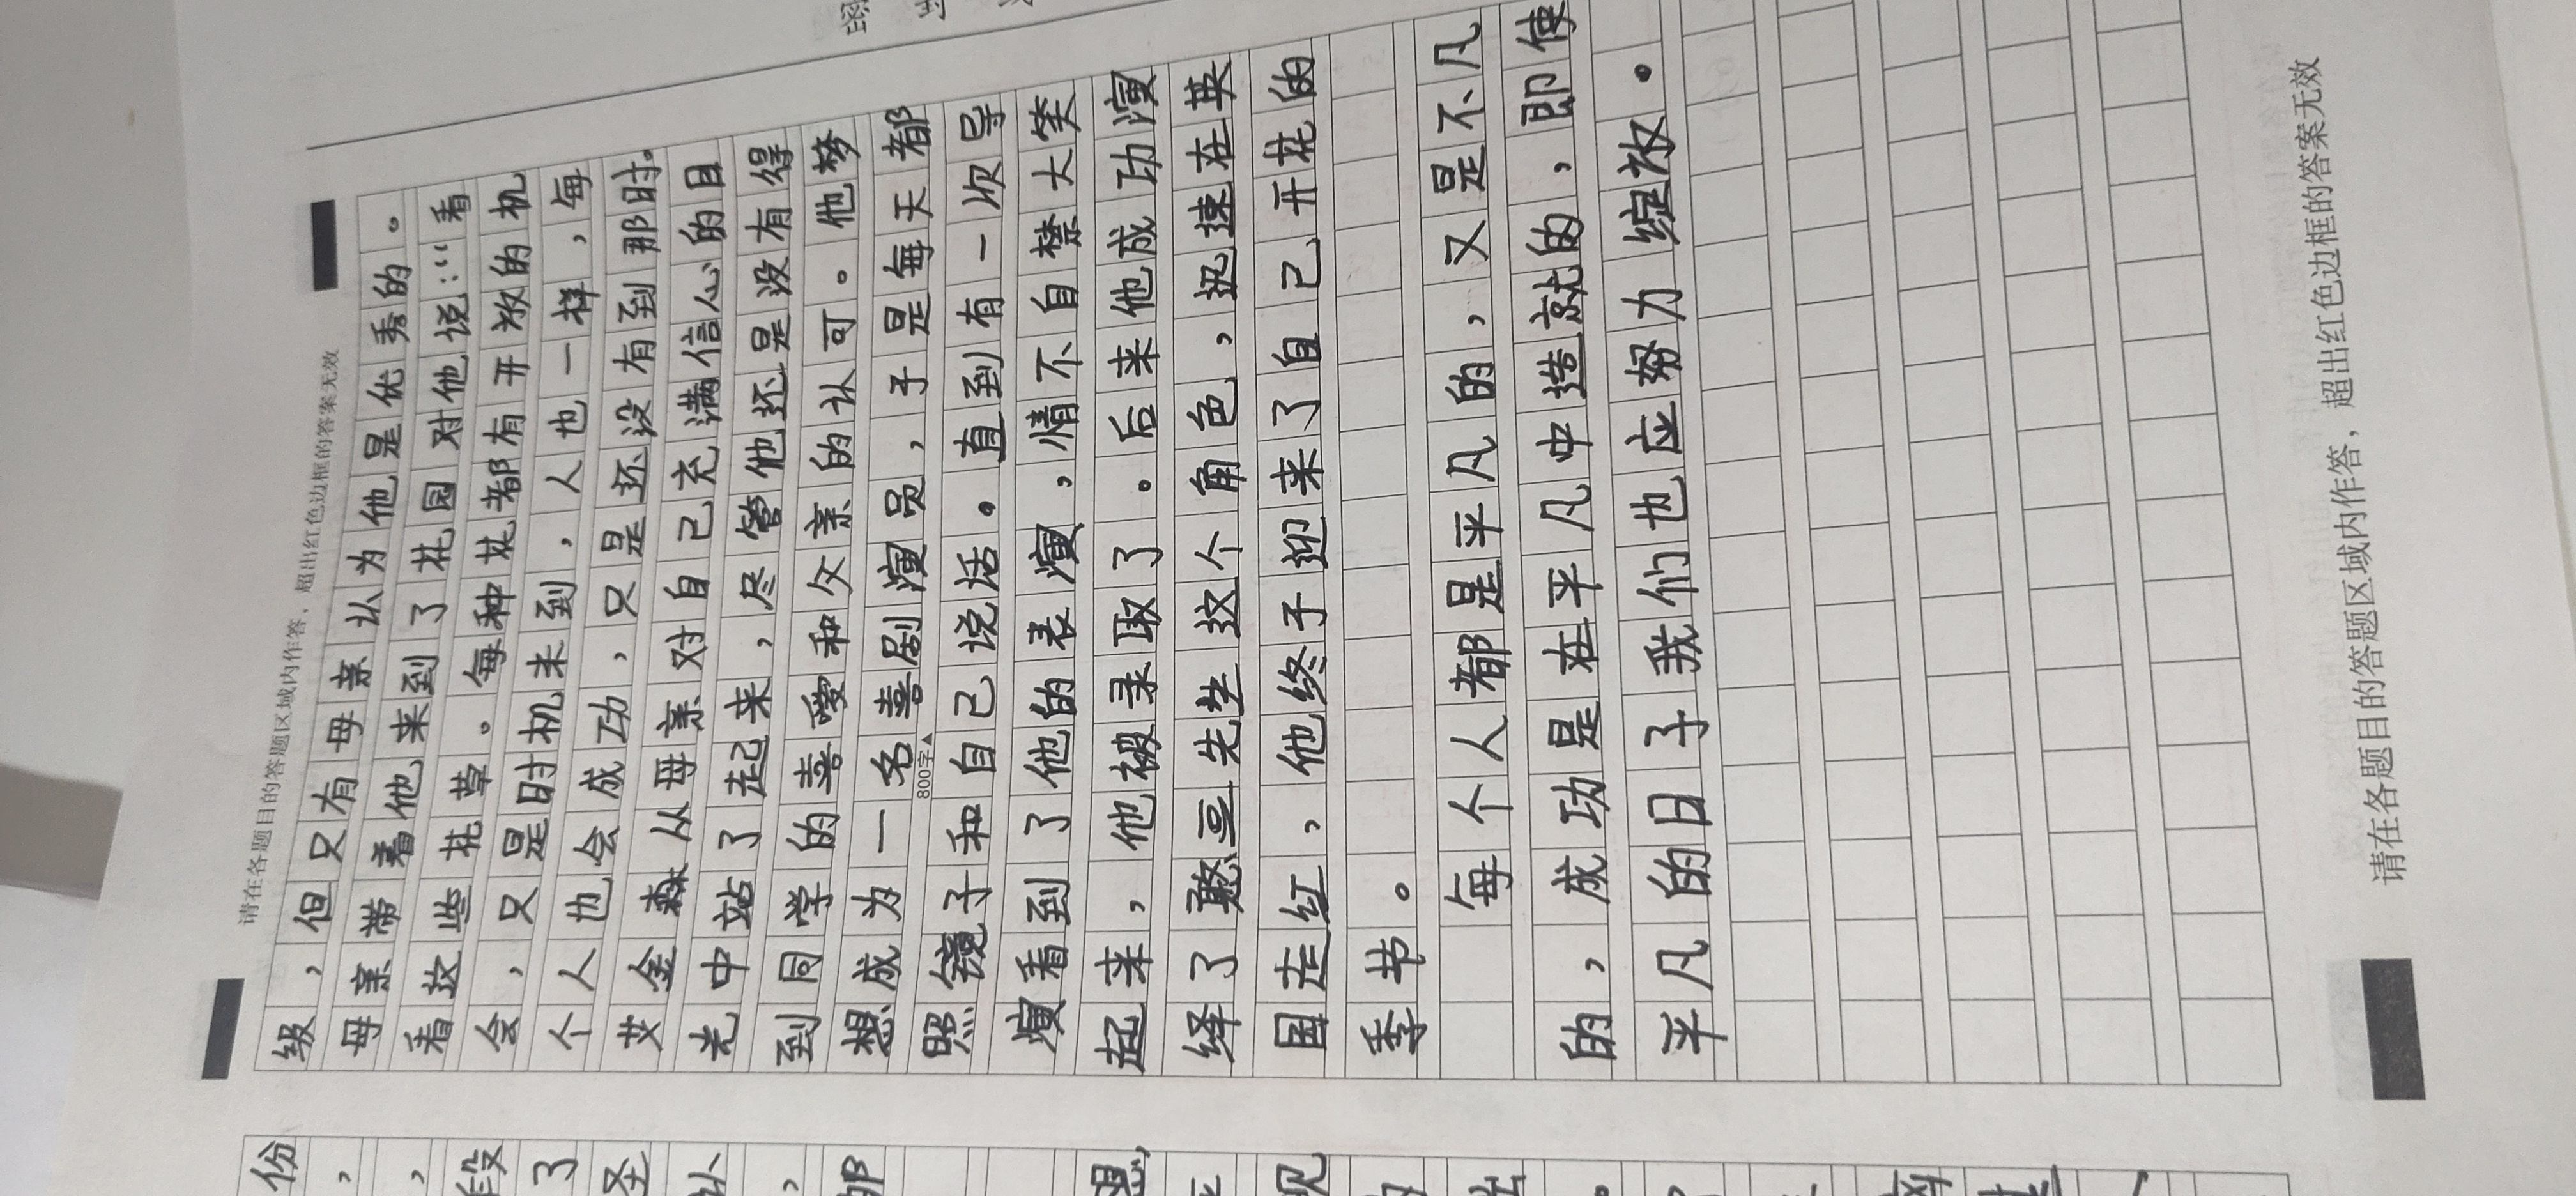 请在各题目的答题区域内作答，超出红色边框的答案无效
级，但只有母亲认为他是优秀的。
母亲带着他来到了花园对他说：“看
看这些花草。每种花都有开放的机
会，只是时机未到，人也一样，每
个人也会成功，只是还没有到那时。
艾金森从母亲对自己充满信心的目
光中站了起来，尽管他还是没有得
到同学的喜爱和父亲的认可。他梦
想成为一名喜剧演员，于是每天都
800字▲
照镜子和自己说话。直到有一次导
演看到了他的表演，情不自禁大笑
起来，他被录取了。后来他成功演
绎了憨豆先生这个角色，迅速在英
国走红，他终于迎来了自己开花的
季节。
每个人都是平凡的，又是不凡
的，成功是在平凡中造就的，即使
平凡的日子我们也应努力绽放。
请在各题目的答题区域内作答，超出红色边框的答案无效
份
，
，
段
了
圣
从
，
那